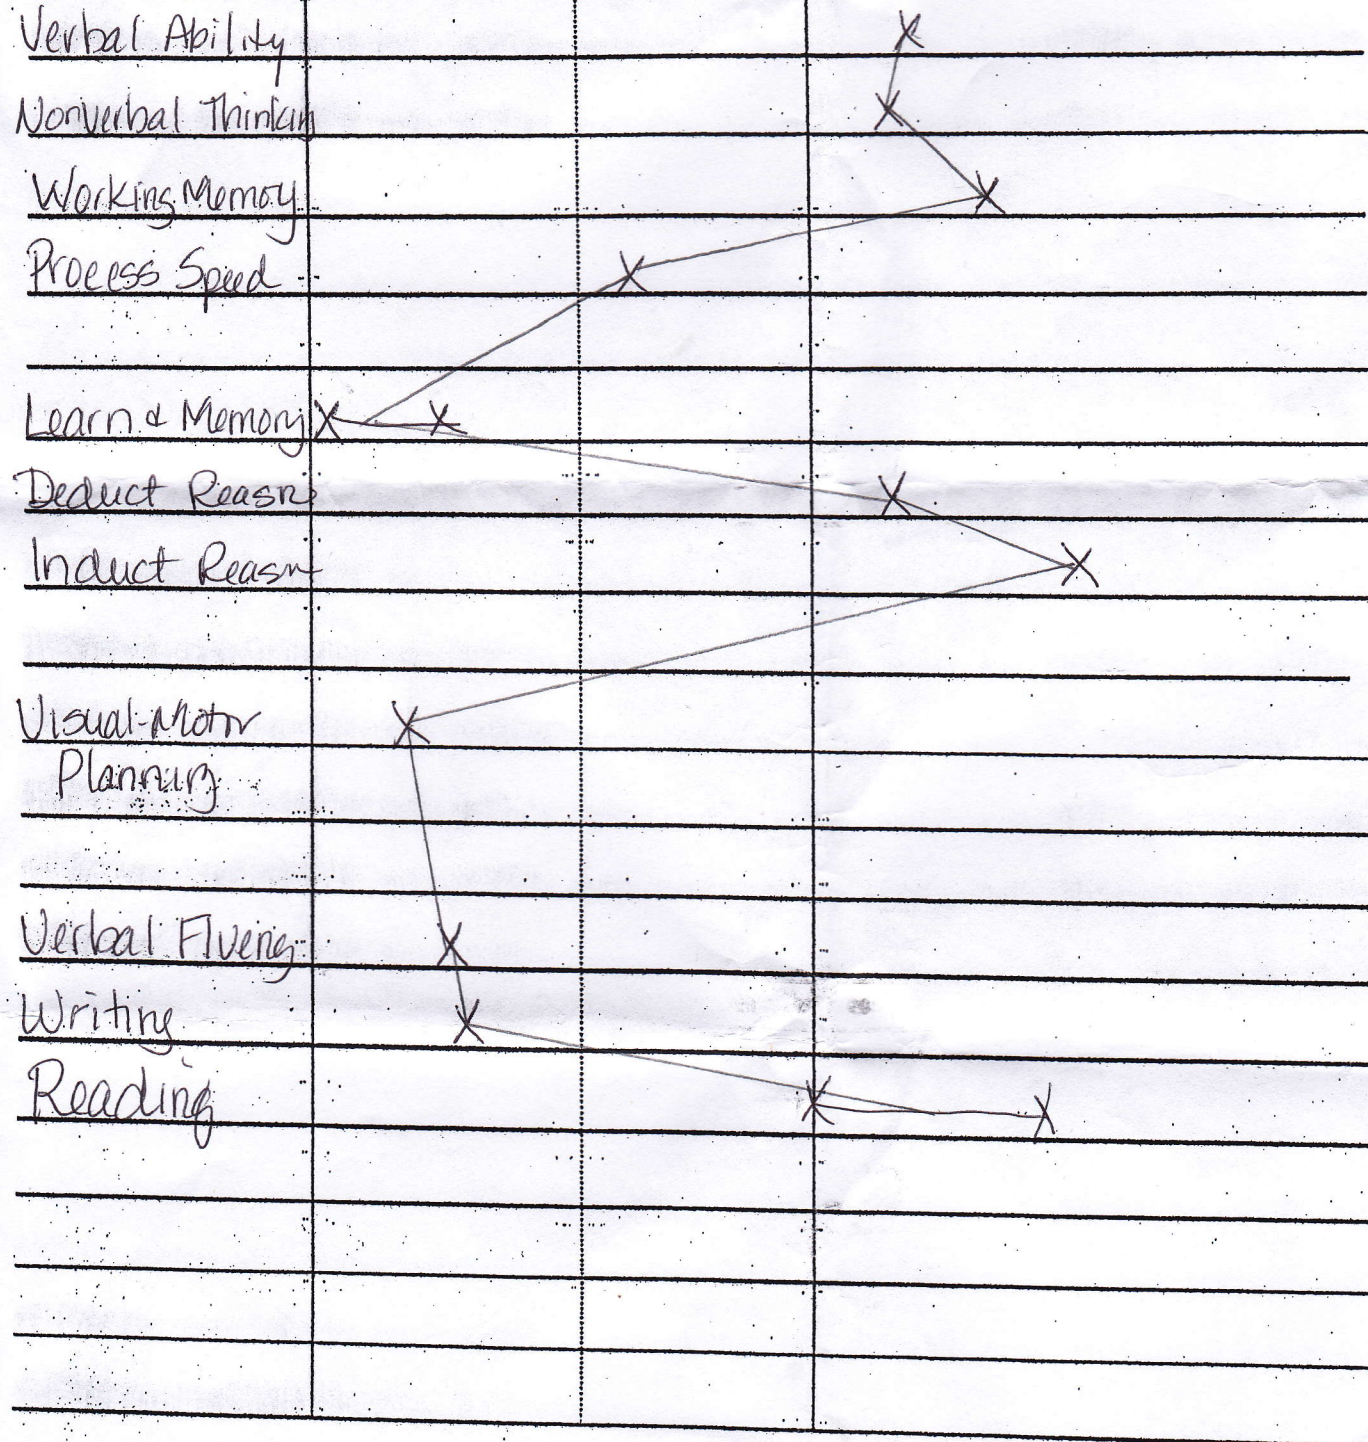 Verbal Ability
Nonverbal Thinkin
Working Memory
Process Speed
Learn & Memory
Deduct Reasn
Induct Reasn
Visual-Motor
Planning
Verbal Fluency
Writing
Reading